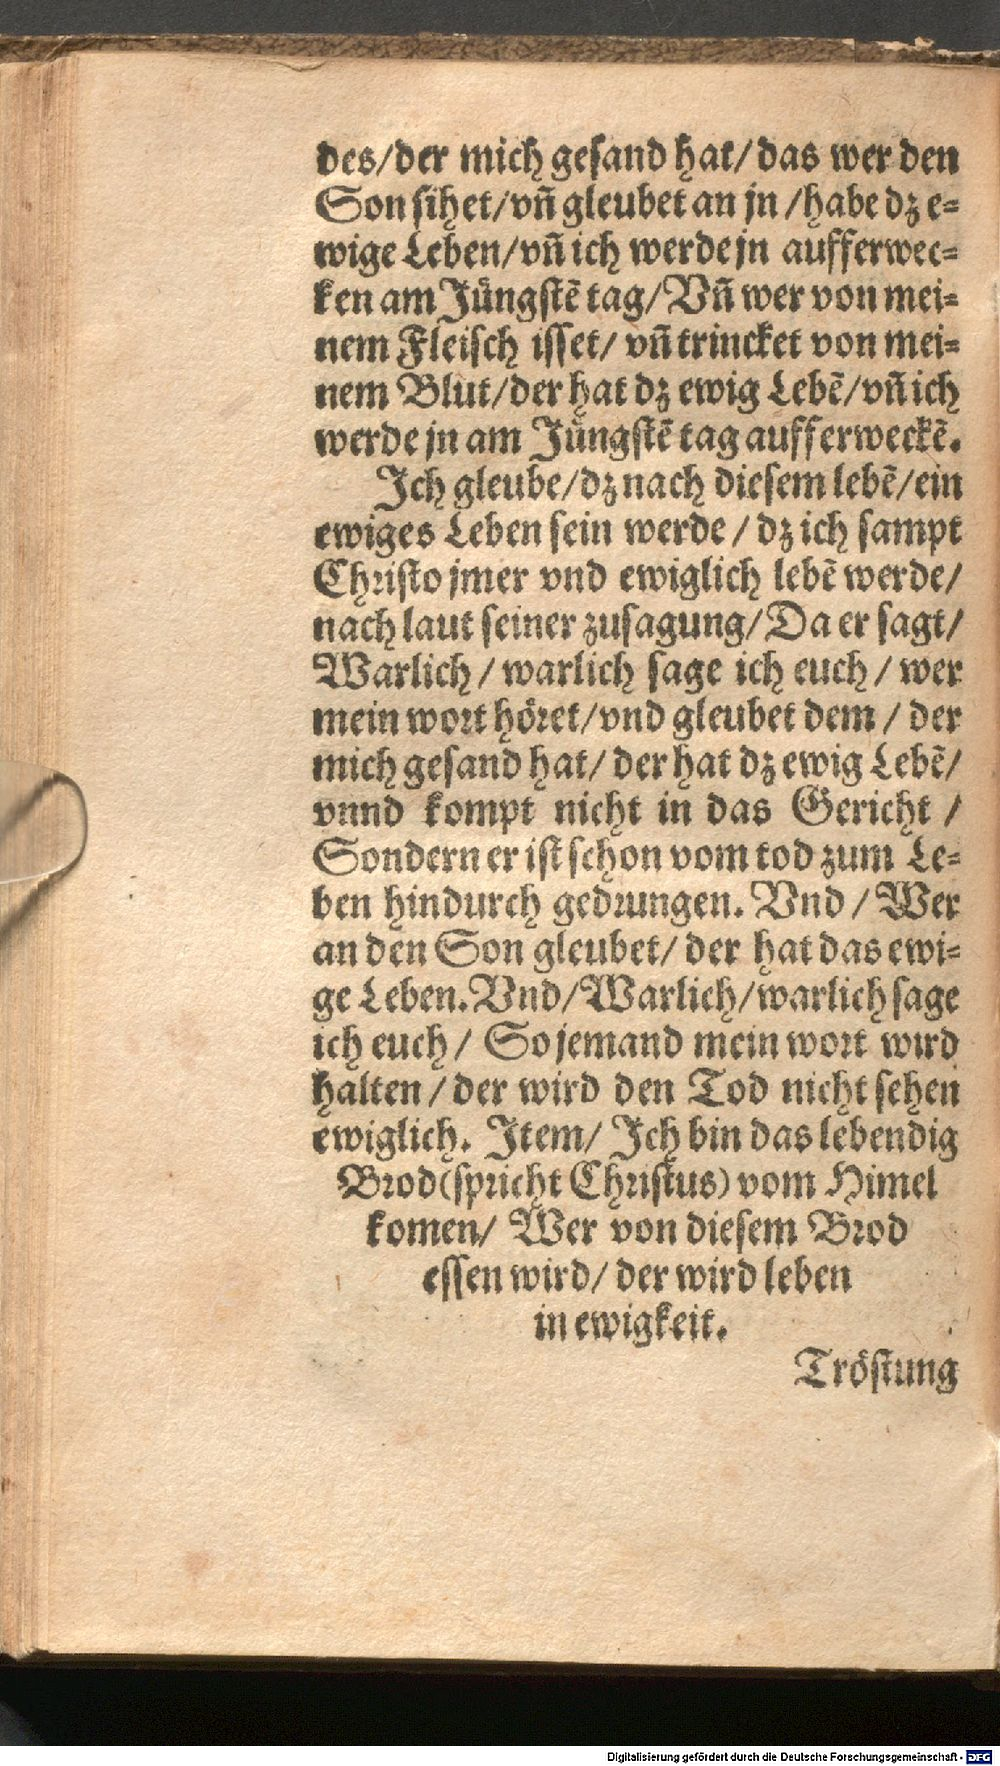 des/der mich gesand hat/das wer den
Son sihet/vñ gleubet an jn /habe dz e=
wige Leben/vñ ich werde jn aufferwec=
ken am Jüngstẽ tag/Vñ wer von mei=
nem Fleisch isset/ vñ trincket von mei=
nem Blut/der hat dz ewig Lebẽ/vñ ich
werde jn am Jüngstẽ tag aufferweckẽ.
Ich gleube/dz nach diesem lebẽ/ein
ewiges Leben sein werde / dz ich sampt
Christo jmer vnd ewiglich lebẽ werde/
nach laut seiner zusagung/Da er sagt/
Warlich / warlich sage ich euch / wer
mein wort höret/vnd gleubet dem / der
mich gesand hat/ der hat dz ewig Lebẽ/
vnnd kompt nicht in das Gericht /
Sondern er ist schon vom tod zum Le=
ben hindurch gedrungen. Vnd / Wer
an den Son gleubet/ der hat das ewi=
ge Leben. Vnd/Warlich/warlich sage
ich euch / So jemand mein wort wird
halten / der wird den Tod nicht sehen
ewiglich. Item/ Ich bin das lebendig
Brod (spricht Christus) vom Himel
komen/ Wer von diesem Brod
essen wird/ der wird leben
in ewigkeit.
Tröstung
Digitalisierung gefördert durch die Deutsche Forschungsgemeinschaft - DFG